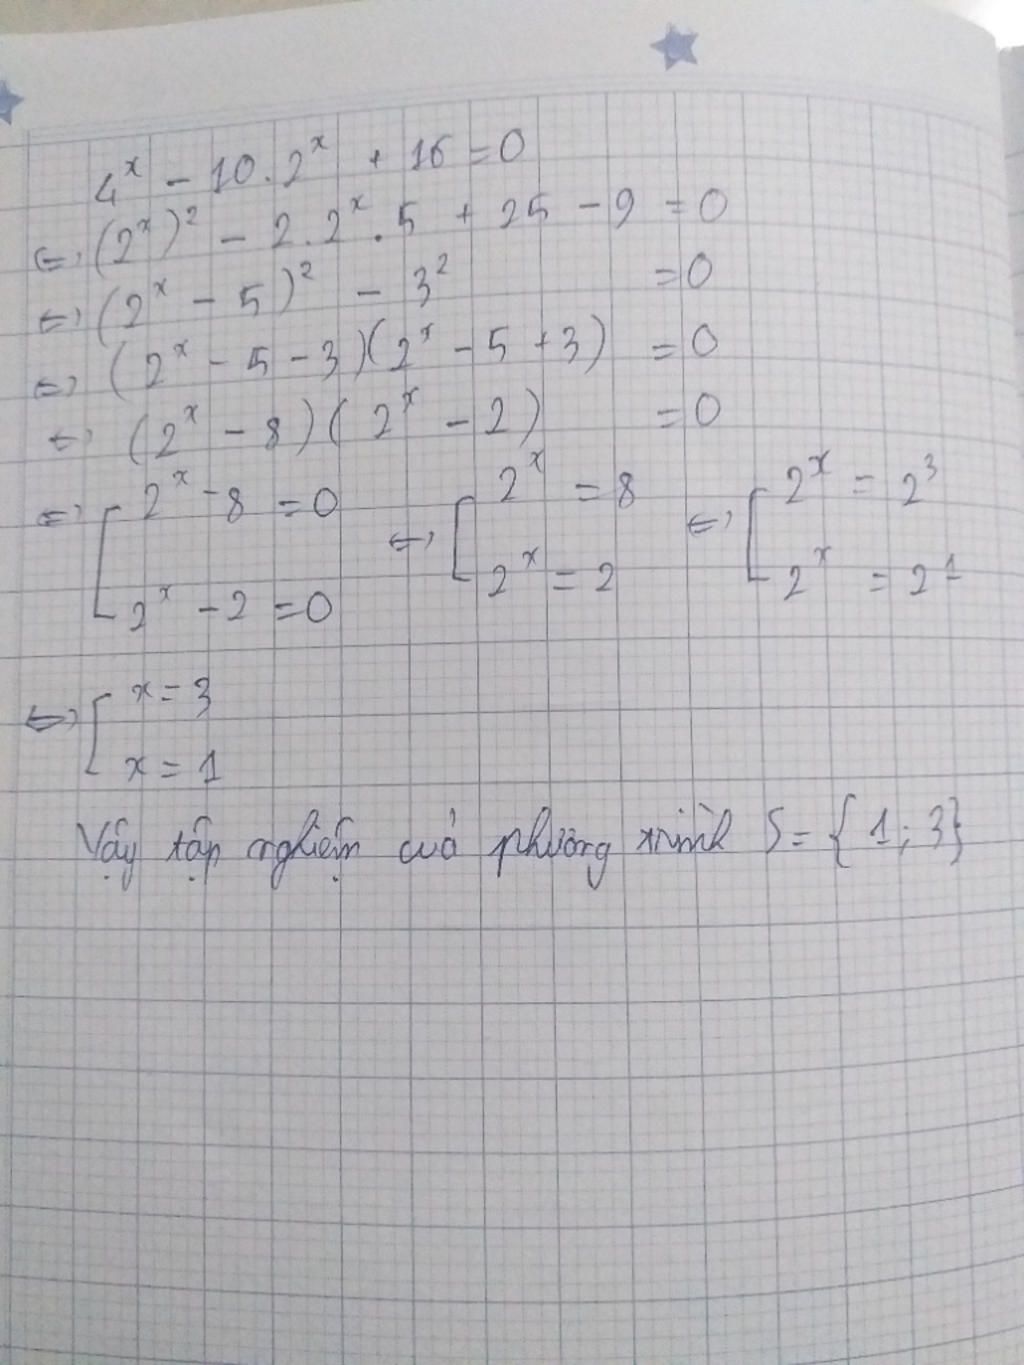 4ˣ - 10.2ˣ + 16 = 0
⇔ (2ˣ)² - 2.2ˣ.5 + 25 - 9 = 0
⇔ (2ˣ - 5)² - 3² = 0
⇔ (2ˣ - 5 - 3)(2ˣ - 5 + 3) = 0
⇔ (2ˣ - 8)(2ˣ - 2) = 0
⇔ [ 2ˣ - 8 = 0 ⇔ [ 2ˣ = 8 ⇔ [ 2ˣ = 2³
2ˣ - 2 = 0 2ˣ = 2 2ˣ = 2¹
⇔ [ x = 3
x = 1
Vậy tập nghiệm cuả phương trình S = { 1 ; 3 }